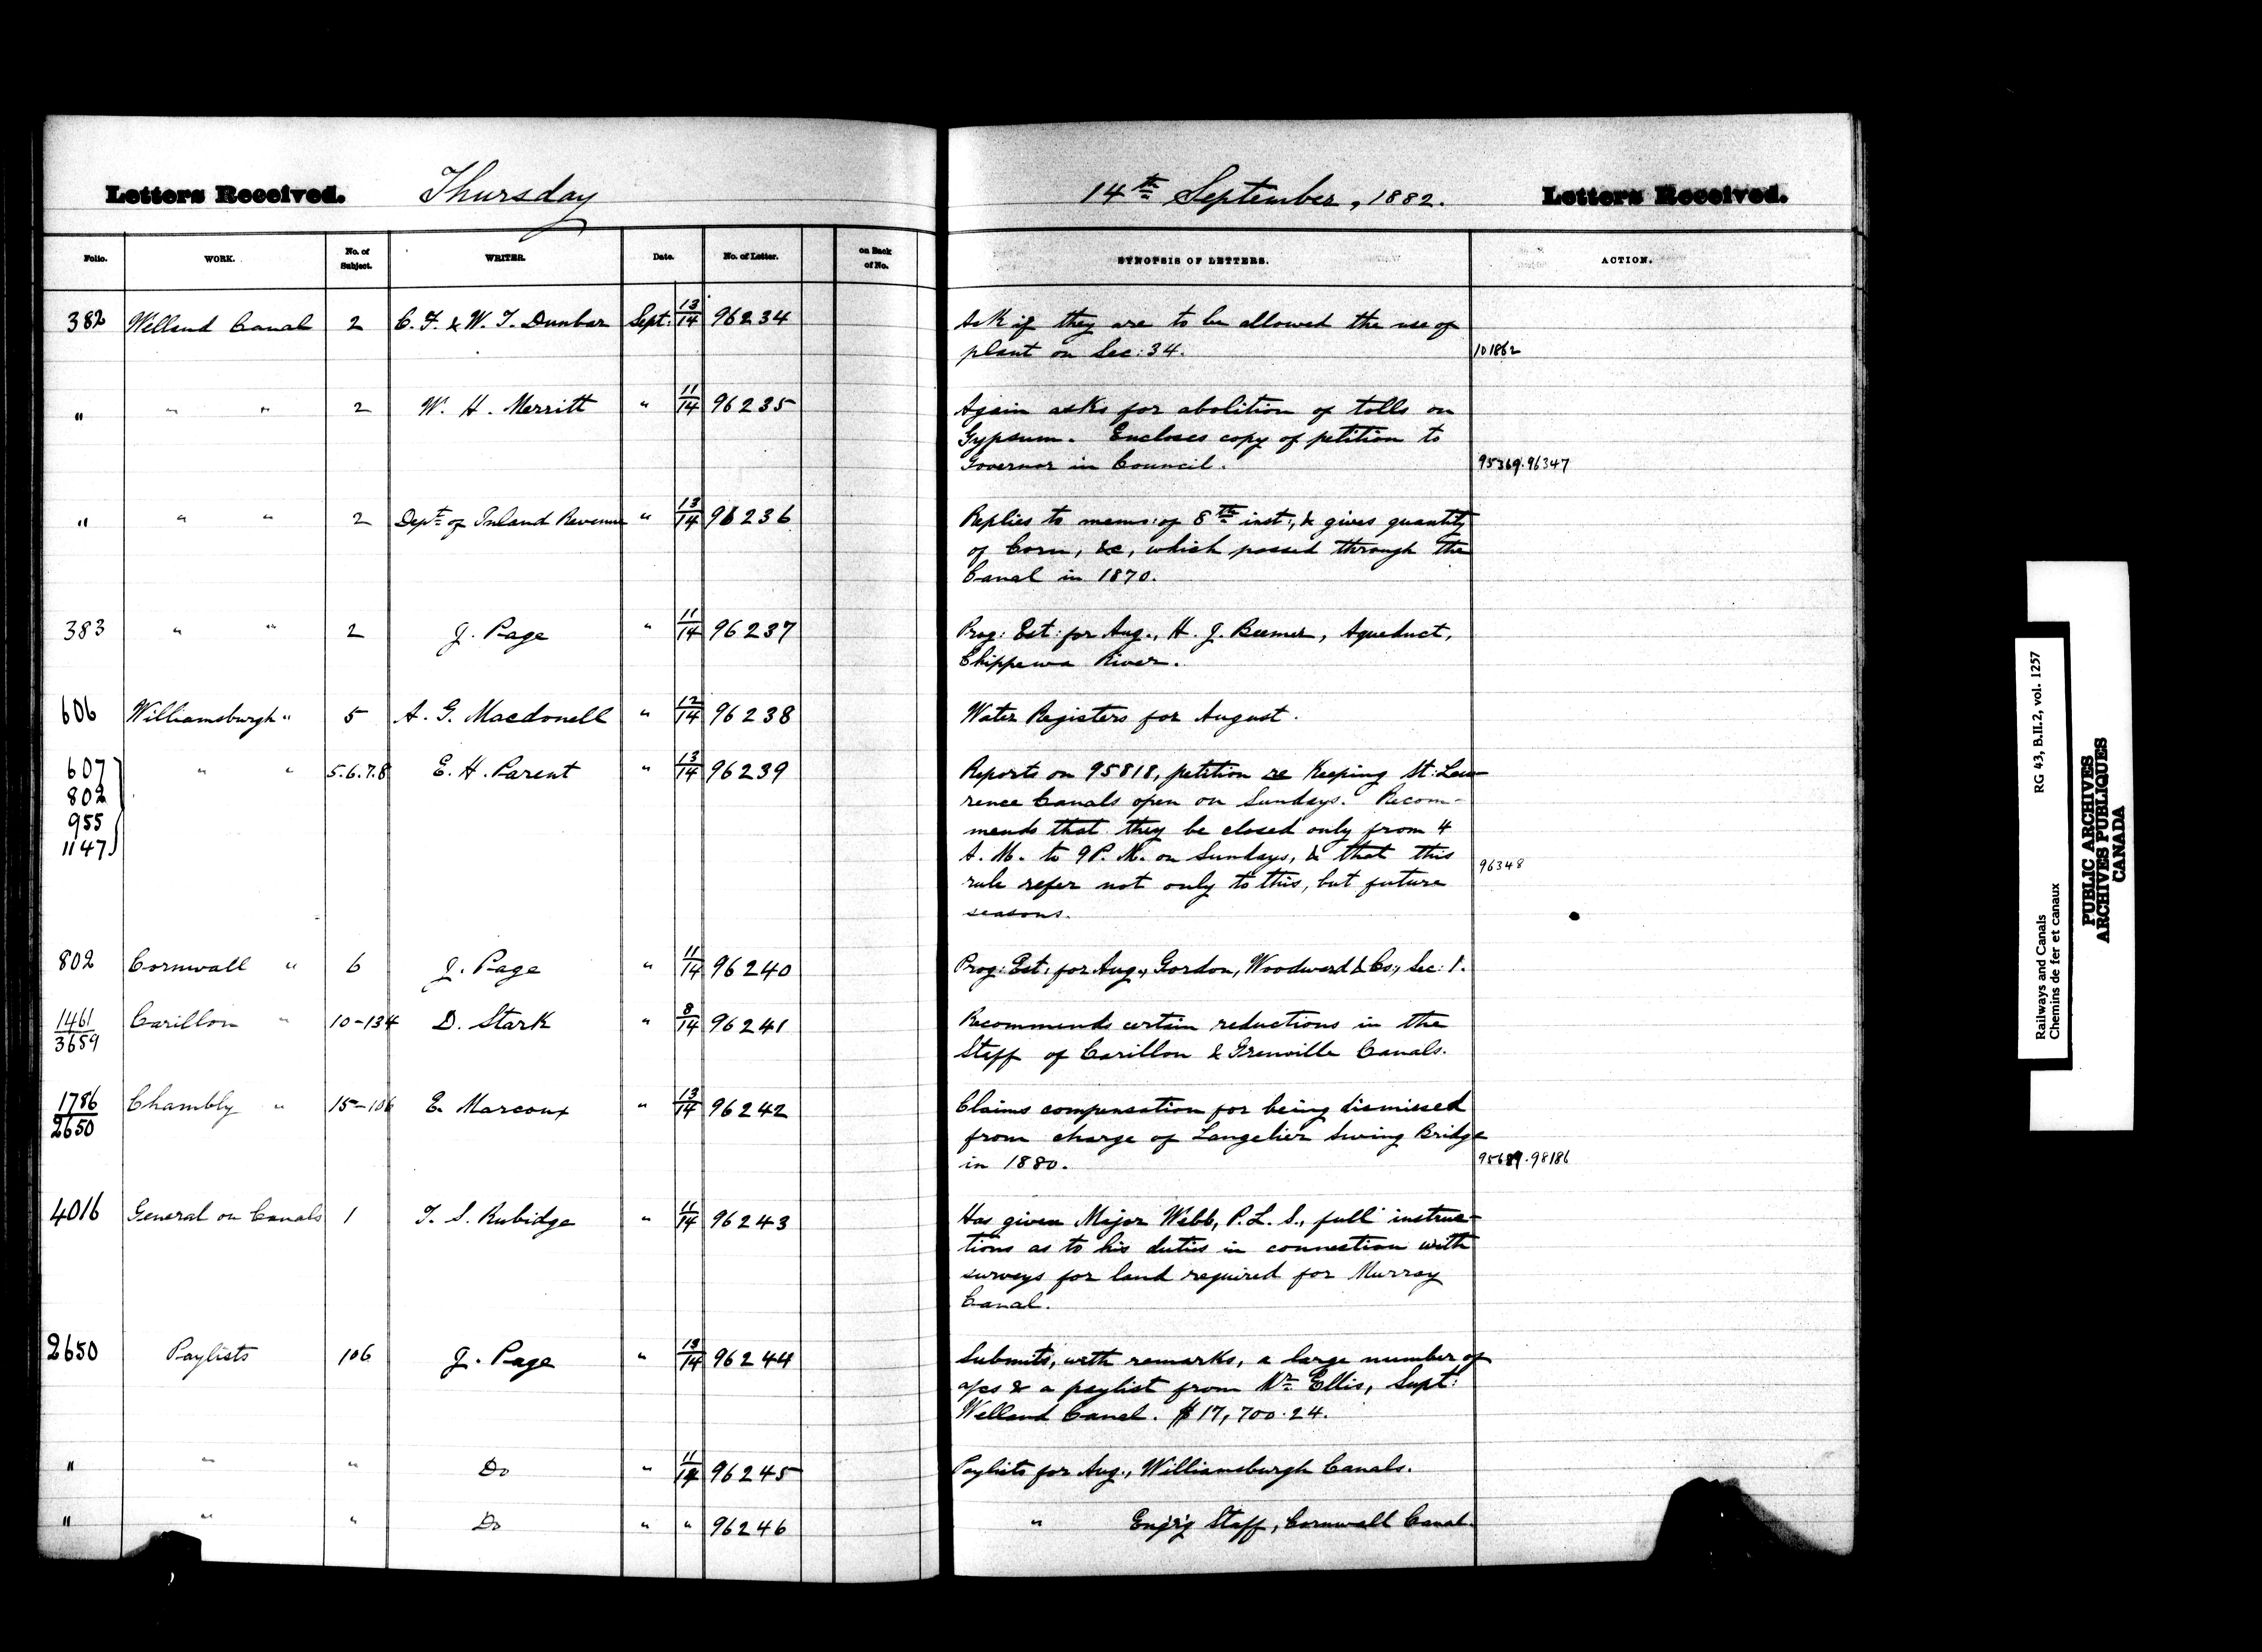 Letters Received. Thursday 14th September, 1882. Letters Received.
Folio. WORK. No. of Subject. WRITER. Date. No. of Letter. on Back of No. SYNOPSIS OF LETTERS. ACTION.
382 Welland Canal 2 C. F. & W. T. Dunbar Sept: 13/14 96234 Ask if they are to be allowed the use of
plant on Sec: 34. 101862
" " " 2 W. H. Merritt " 11/14 96235 Again asks for abolition of tolls on
Gypsum. Encloses copy of petition to
Governor in Council. 95369.96347
" " " 2 Dept of Inland Revenue " 13/14 96236 Replies to memo: of 8th inst:, & gives quantity
of Corn, &c, which passed through the
Canal in 1870.
383 " " 2 J. Page " 11/14 96237 Prog: Est: for Aug., H. J. Beemer, Aqueduct,
Chippewa River.
606 Williamsburgh " 5 A. G. Macdonell " 12/14 96238 Water Registers for August.
607 " " 5.6.7.8 E. H. Parent " 13/14 96239 Reports on 95818, petition re Keeping St: Law-
802 rence Canals open on Sundays. Recom-
955 mends that they be closed only from 4
1147 A. M. to 9 P. M. on Sundays, & that this
rule refer not only to this, but future 96348
seasons.
802 Cornwall " 6 J. Page " 11/14 96240 Prog: Est: for Aug., Gordon, Woodward & Co:, Sec: 1.
1461 Carillon " 10-134 D. Stark " 8/14 96241 Recommends certain reductions in the
3659 Staff of Carillon & Grenville Canals.
1786 Chambly " 15-106 E. Marcoux " 13/14 96242 Claims compensation for being dismissed
2650 from charge of Langelier Swing Bridge
in 1880. 95689.98186
4016 General on Canals 1 T. S. Rubidge " 11/14 96243 Has given Major Webb, P. L. S., full instruc-
tions as to his duties in connection with
surveys for land required for Murray
Canal.
2650 Paylists 106 J. Page " 13/14 96244 Submits, with remarks, a large number of
a/cs & a paylist from Mr. Ellis, Supt:
Welland Canal. $17,700.24.
" " " Do " 11/14 96245 Paylists for Aug., Williamsburgh Canals.
" " " Do " " 96246 " Eng'r'g Staff, Cornwall Canal.
Railways and Canals RG 43, B.II.2, vol. 1257
Chemins de fer et canaux
PUBLIC ARCHIVES
ARCHIVES PUBLIQUES
CANADA